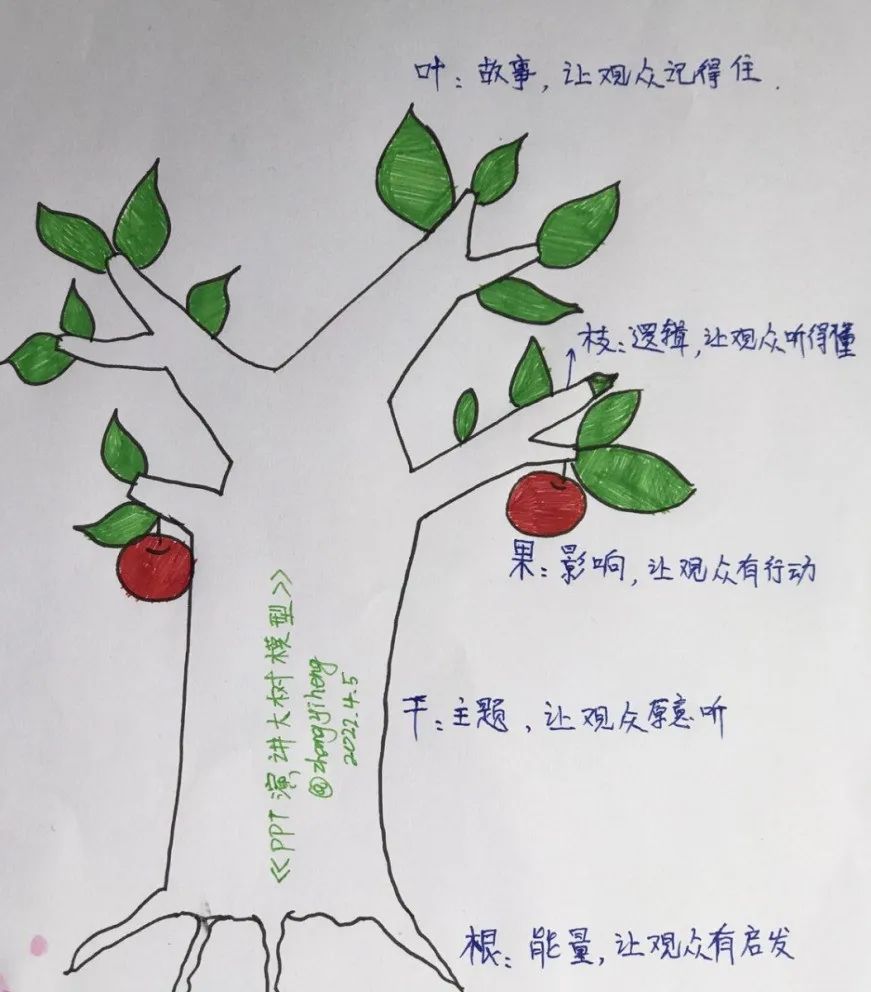 叶：故事，让观众记得住.
枝：逻辑，让观众听得懂
果：影响，让观众有行动
《PPT演讲大树模型》
@zhangyiheng
2022.4.5
干：主题，让观众愿意听
根：能量，让观众有启发